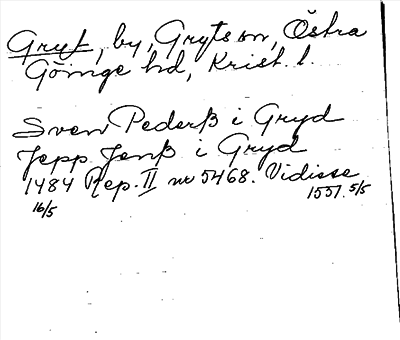 Gryt, by, Gryts sn, Östra
Göinge hd, Krist. l.
Sven Pederß i Gryd
Jepp Jenß i Gryd
1484 Rep. II nr 5468. Vidisse
16/5 1557. 5/5